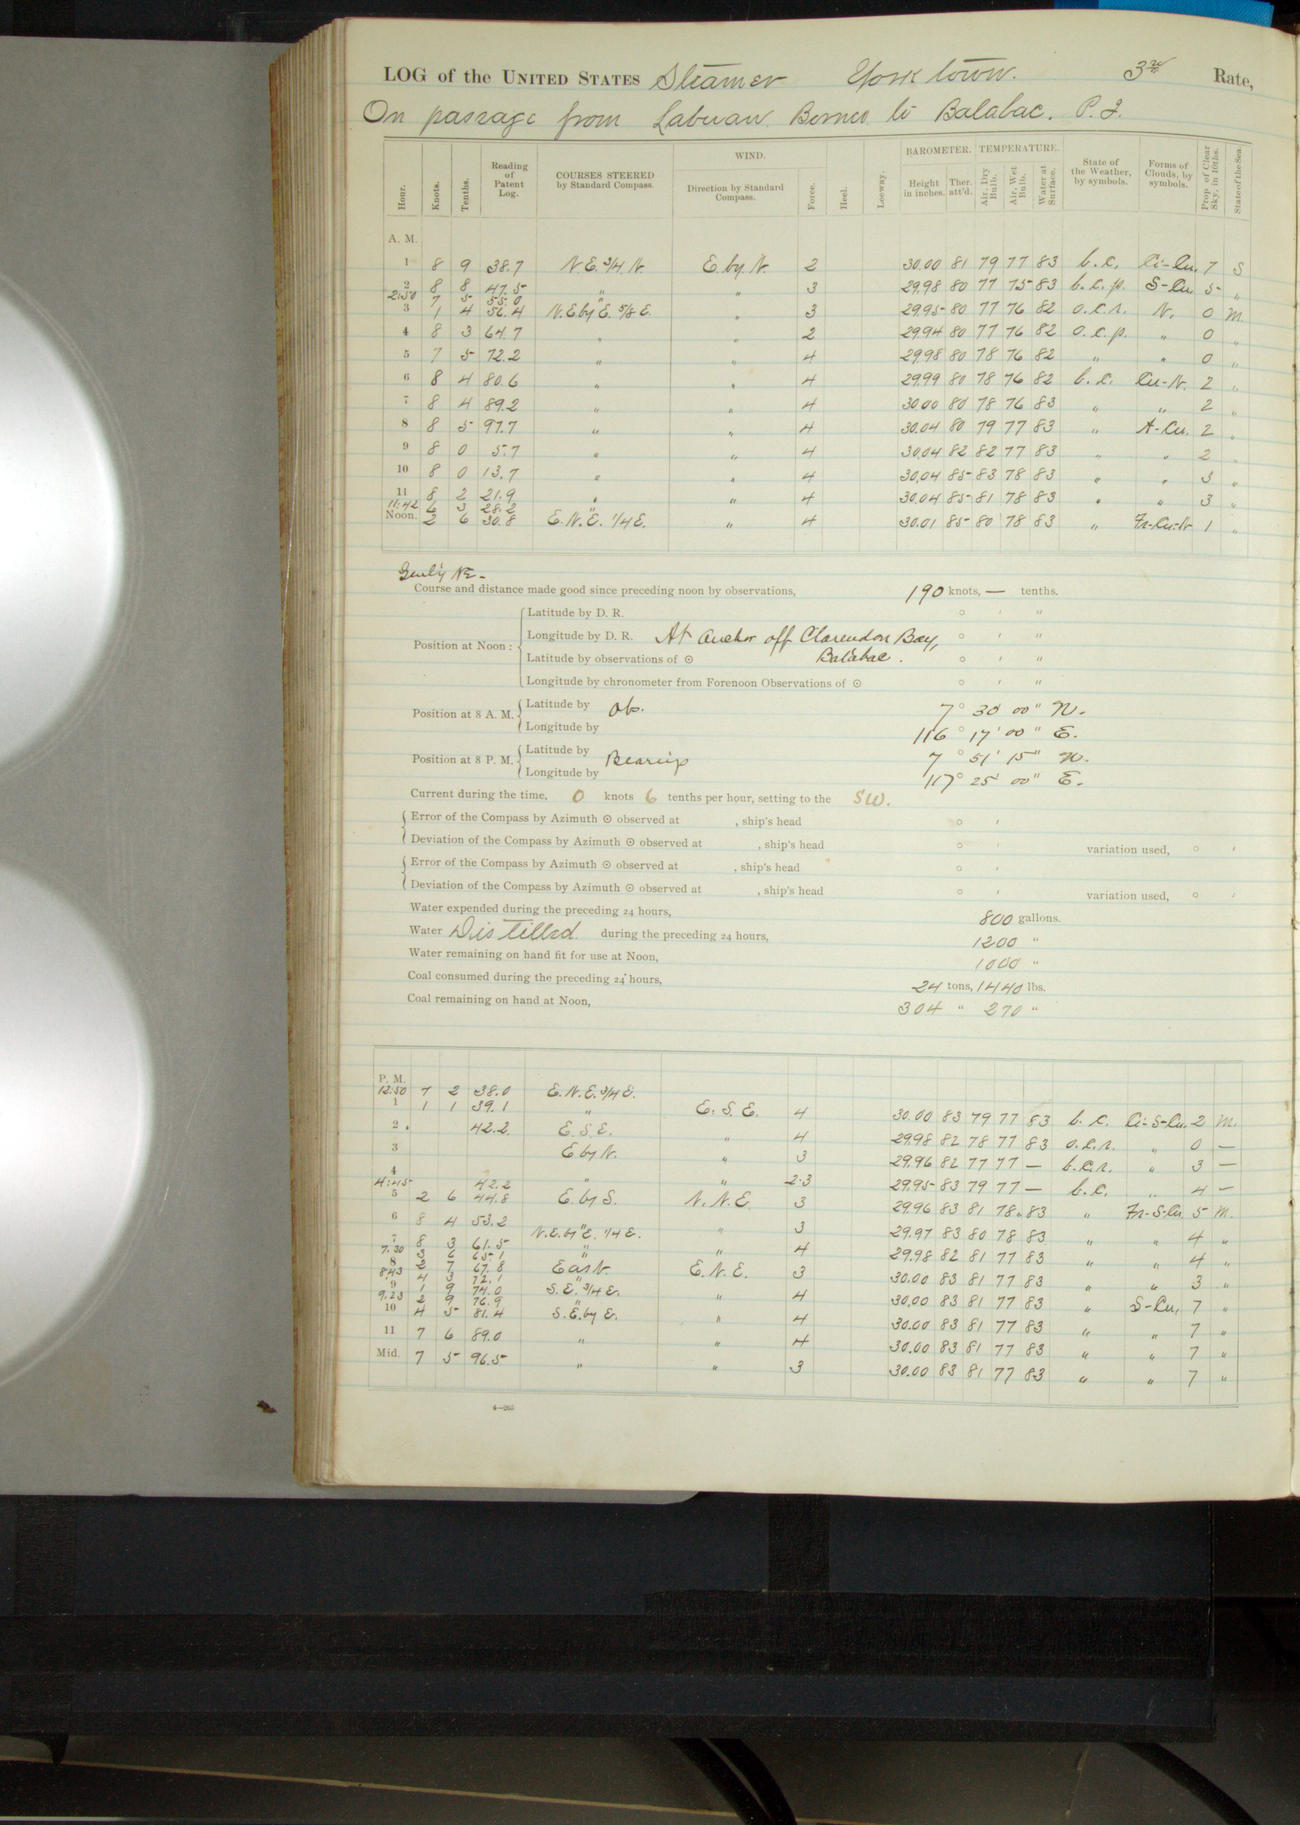 LOG of the UNITED STATES Steamer Yorktown. 3rd Rate,
On passage from Labuan Borneo to Balabac. P.I.
Hour. Knots. Tenths. Reading of Patent Log. COURSES STEERED by Standard Compass. WIND. Direction by Standard Compass. Force. Heel. Leeway. BAROMETER. Height in inches. Ther. att'd. TEMPERATURE. Air, Dry Bulb. Air, Wet Bulb. Water at Surface. State of the Weather, by symbols. Forms of Clouds, by symbols. Prop. of Clear Sky, in 10ths. State of the Sea.
A. M.
1 8 9 38.7 N.E. 3/4 N. E. by N. 2 30.00 81 79 77 83 b.c. Ci-Cu. 7 S
2 8 8 47.5 " " 3 29.98 80 77 75 83 b.c.p. S-Cu. 5 "
2:50 7 5 55.0 "
3 1 4 56.4 N.E. by E. 5/8 E. " 3 29.95 80 77 76 82 o.c.r. N. 0 M
4 8 3 64.7 " " 2 29.94 80 77 76 82 o.c.p. " 0 "
5 7 5 72.2 " " 4 29.98 80 78 76 82 " " 0 "
6 8 4 80.6 " " 4 29.99 80 78 76 82 b.c. Cu-N. 2 "
7 8 4 89.2 " " 4 30.00 80 78 76 83 " " 2 "
8 8 5 97.7 " " 4 30.04 80 79 77 83 " A-Cu. 2 "
9 8 0 5.7 " " 4 30.04 82 82 77 83 " " 2 "
10 8 0 13.7 " " 4 30.04 85 83 78 83 " " 3 "
11 8 2 21.9 " " 4 30.04 85 81 78 83 " " 3 "
11:42 6 3 28.2 "
Noon. 2 6 30.8 E.N.E. 1/4 E. " 4 30.01 85 80 78 83 " Fr-Cu-N 1 "
Gen'ly NE-
Course and distance made good since preceding noon by observations, 190 knots, — tenths.
Position at Noon:
Latitude by D. R. ° ' "
Longitude by D. R. At anchor off Clarendon Bay, ° ' "
Latitude by observations of ☉ Balabac. ° ' "
Longitude by chronometer from Forenoon Observations of ☉ ° ' "
Position at 8 A. M. Latitude by Obs. 7° 30' 00" N.
Longitude by 116° 17' 00" E.
Position at 8 P. M. Latitude by Bearings 7° 51' 15" N.
Longitude by 117° 25' 00" E.
Current during the time, 0 knots 6 tenths per hour, setting to the SW.
Error of the Compass by Azimuth ☉ observed at , ship's head ° '
Deviation of the Compass by Azimuth ☉ observed at , ship's head ° ' variation used, ° '
Error of the Compass by Azimuth ☉ observed at , ship's head ° '
Deviation of the Compass by Azimuth ☉ observed at , ship's head ° ' variation used, ° '
Water expended during the preceding 24 hours, 800 gallons.
Water Distilled during the preceding 24 hours, 1200 "
Water remaining on hand fit for use at Noon, 1000 "
Coal consumed during the preceding 24 hours, 24 tons, 1440 lbs.
Coal remaining on hand at Noon, 304 " 270 "
P. M.
12:50 7 2 38.0 E.N.E. 3/4 E.
1 1 1 39.1 " E.S.E. 4 30.00 83 79 77 83 b.c. Ci-S-Cu. 2 M.
2 42.2 E.S.E. " 4 29.98 82 78 77 83 o.c.r. " 0 —
3 E by N. " 3 29.96 82 77 77 — b.c.r. " 3 —
4 " " 2-3 29.95 83 79 77 — b.c. " 4 —
4:45 42.2
5 2 6 44.8 E. by S. N.N.E. 3 29.96 83 81 78 83 " Fr-S-Cu. 5 M.
6 8 4 53.2 " " 3 29.97 83 80 78 83 " " 4 "
7 8 3 61.5 N.E. by E. 1/4 E. " 4 29.98 82 81 77 83 " " 4 "
7.30 3 6 65.1 "
8 2 7 67.8 East. E.N.E. 3 30.00 83 81 77 83 " " 3 "
8.43 4 3 72.1 "
9 1 9 74.0 S.E. 3/4 E. " 4 30.00 83 81 77 83 " S-Cu. 7 "
9.23 2 9 76.9 "
10 4 5 81.4 S.E. by E. " 4 30.00 83 81 77 83 " " 7 "
11 7 6 89.0 " " 4 30.00 83 81 77 83 " " 7 "
Mid. 7 5 96.5 " " 3 30.00 83 81 77 83 " " 7 "